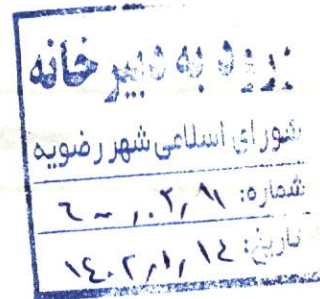 ورود به دبیرخانه
شورای اسلامی شهر رضویه
شماره:
تاریخ: ۱۴۰۲/۸/۱۴